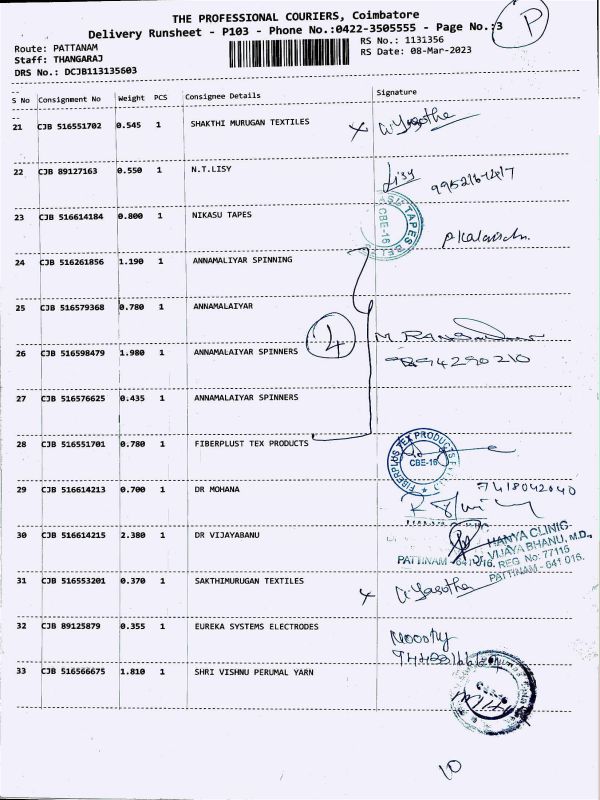 THE PROFESSIONAL COURIERS, Coimbatore
Delivery Runsheet - P103 - Phone No.:0422-3505555 - Page No.:3
P
Route: PATTANAM
RS No.: 1131356
Staff: THANGARAJ
RS Date: 08-Mar-2023
DRS No.: DCJB113135603
S No Consignment No Weight PCS Consignee Details Signature
21 CJB 516551702 0.545 1 SHAKTHI MURUGAN TEXTILES
22 CJB 89127163 0.550 1 N.T.LISY Lisy
23 CJB 516614184 0.800 1 NIKASU TAPES
TAPES
CBE-16
24 CJB 516261856 1.190 1 ANNAMALIYAR SPINNING
25 CJB 516579368 0.780 1 ANNAMALAIYAR
4
26 CJB 516598479 1.980 1 ANNAMALAIYAR SPINNERS
9894290210
27 CJB 516576625 0.435 1 ANNAMALAIYAR SPINNERS
28 CJB 516551701 0.780 1 FIBERPLUST TEX PRODUCTS
FIBERPLUS TEX PRODUCTS
CBE-16
29 CJB 516614213 0.700 1 DR MOHANA 7418042040
30 CJB 516614215 2.380 1 DR VIJAYABANU
HANYA CLINIC
VIJAYA BHANU, M.D.,
REG. No: 77115
PATTINAM - 641 016.
PATTINAM - 641 016.
31 CJB 516553201 0.370 1 SAKTHIMURUGAN TEXTILES
32 CJB 89125879 0.355 1 EUREKA SYSTEMS ELECTRODES
33 CJB 516566675 1.810 1 SHRI VISHNU PERUMAL YARN
10